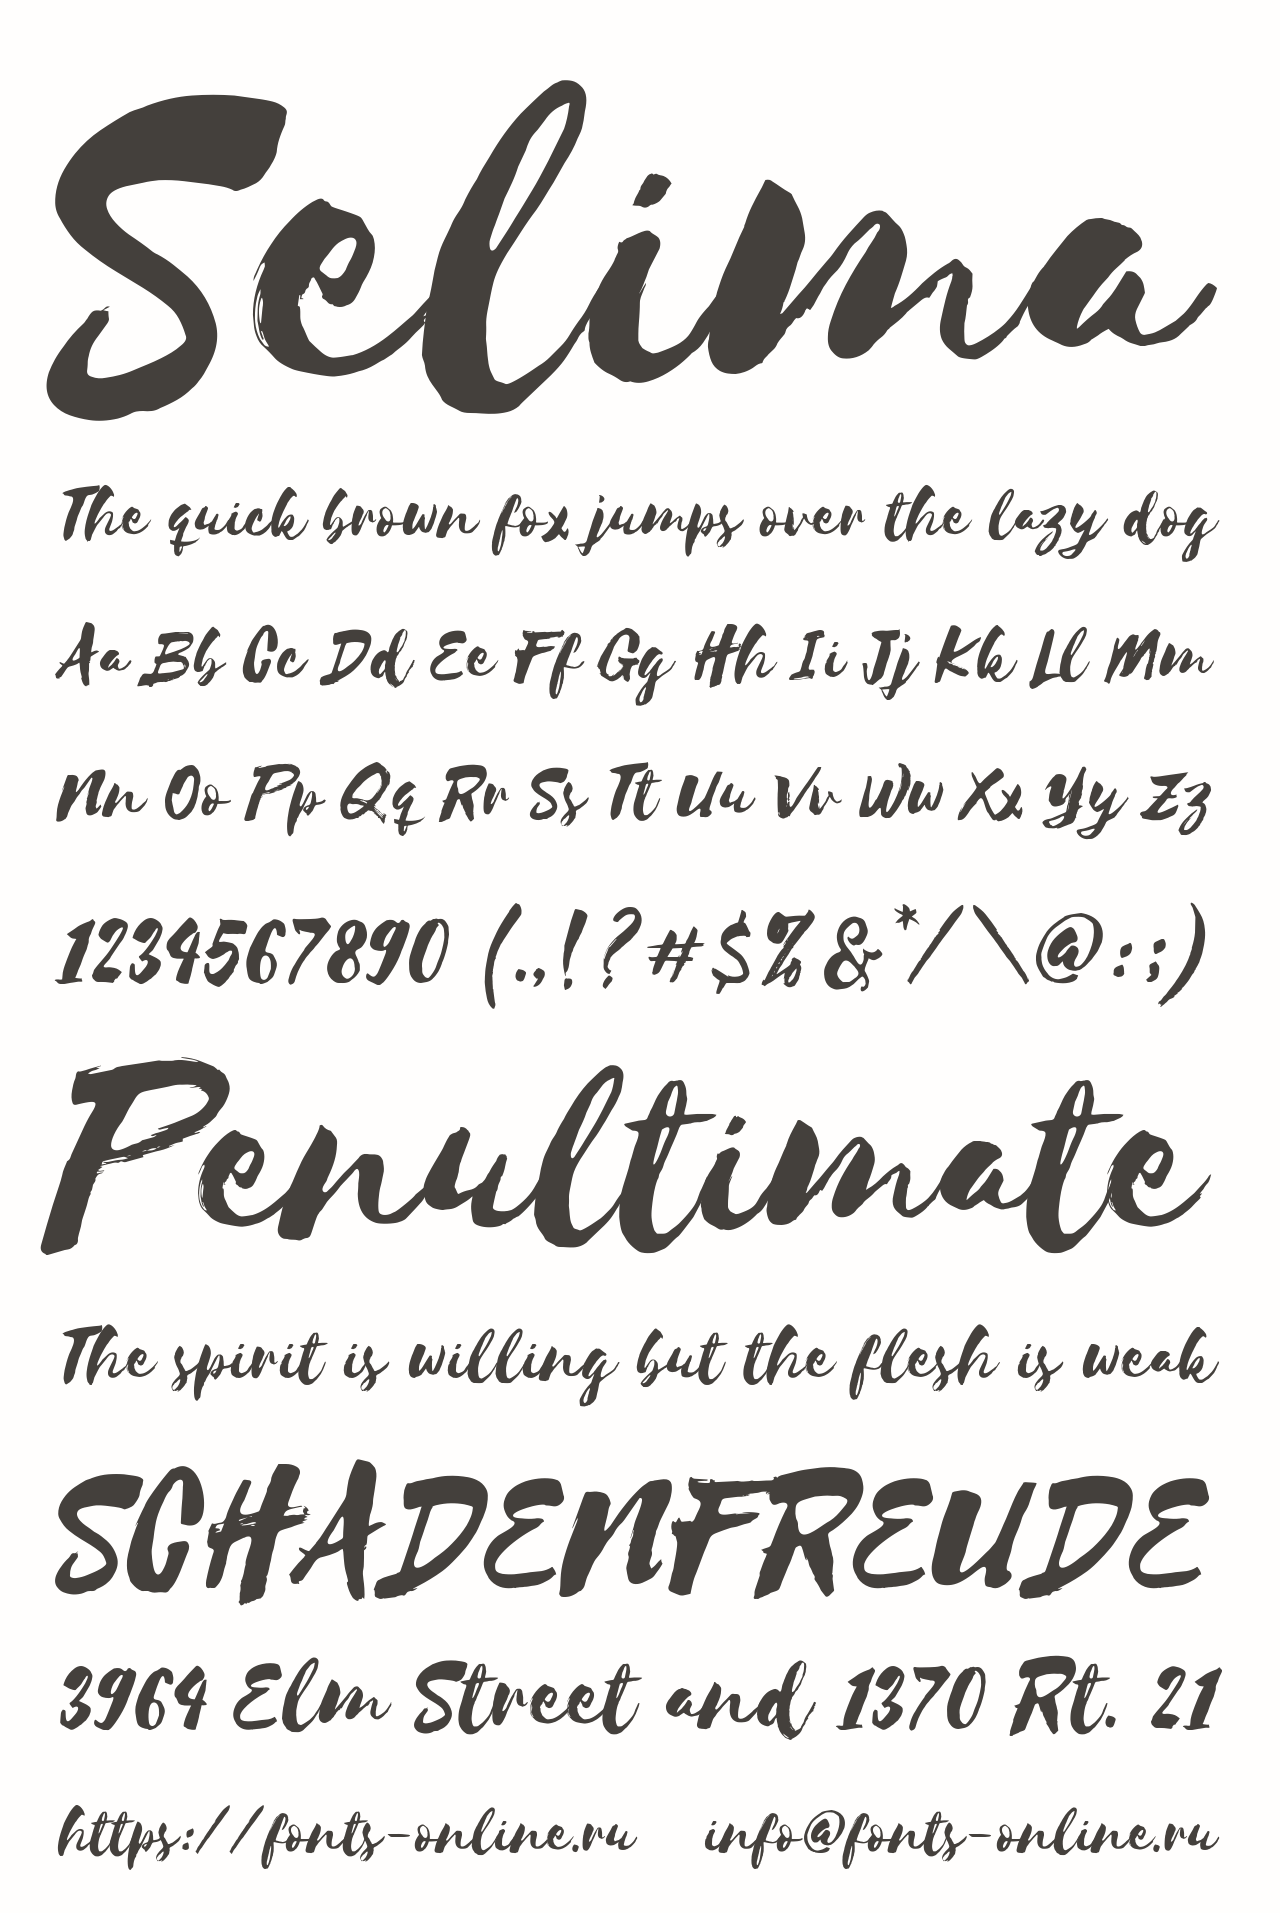 Selima
The quick brown fox jumps over the lazy dog
Aa Bb Cc Dd Ee Ff Gg Hh Ii Jj Kk Ll Mm
Nn Oo Pp Qq Rr Ss Tt Uu Vv Ww Xx Yy Zz
1234567890 (.,!?#$%&*/\@:;)
Penultimate
The spirit is willing but the flesh is weak
SCHADENFREUDE
3964 Elm Street and 1370 Rt. 21
https://fonts-online.ru info@fonts-online.ru